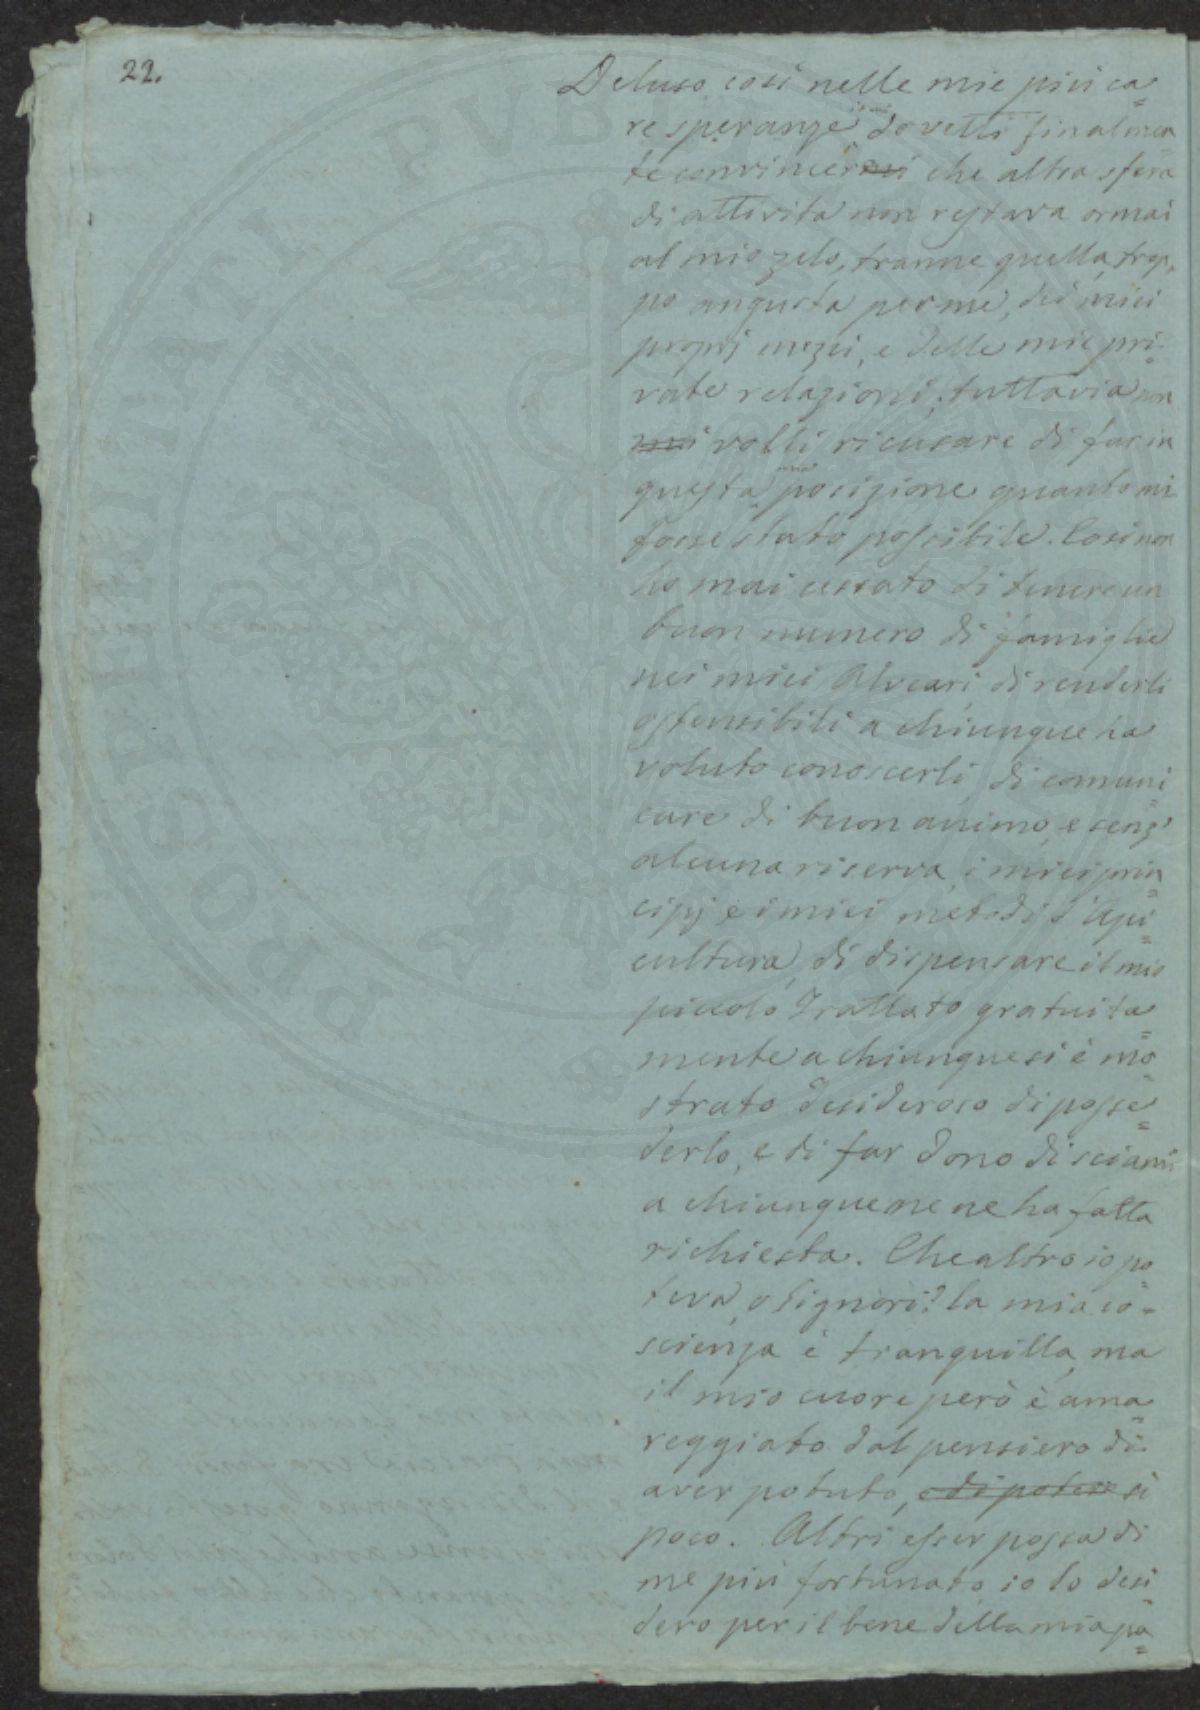 22.
Deluso così nelle mie più ca=
re speranze dovetti finalmen=
te convincermi che altra sfera
di attività non restava ormai
al mio zelo, tranne quella, trop=
po angusta per me, dei miei
proprj mezzi, e delle mie pri=
vate relazioni; tuttavia non
mi volli ricusare di far in
questa posizione quanto mi
fosse stato possibile. Così non
ho mai cessato di tenere un
buon numero di famiglie
nei miei Alveari, di renderli
ostensibili a chiunque ha
voluto conoscerli, di comuni=
care di buon animo, e senz'
alcuna riserva, i miei prin=
cipj e i miei metodi d'Api=
cultura, di dispensare il mio
piccolo Trattato gratuita=
mente a chiunque si è mo=
strato desideroso di posse=
derlo, e di far dono di sciami
a chiunque me ne ha fatta
richiesta. Che altro io po=
teva, o Signori? la mia co=
scienza è tranquilla, ma
il mio cuore però è ama=
reggiato dal pensiero di
aver potuto, e di poter sì
poco. Altri esser possa di
me più fortunato, io lo desi=
dero per il bene della mia pa=
PROSPERITATI PVBLICAE